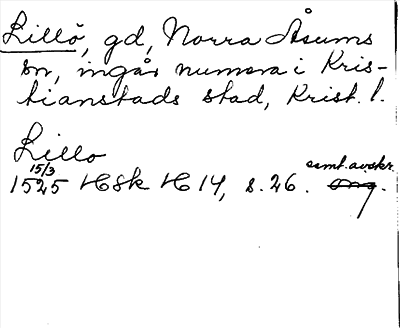 Lillö, gd, Norra Åsums
sn, ingår numera i Kris-
tianstads stad, Krist. l.
Lillo
15/3 samt. avskr.
1525 HSk H 14, s. 26. <s>orig</s>.